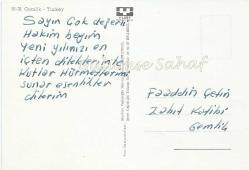 Gemlik - Turkey
Sayın Çok değerli
Hakim beyim
Yeni yılınızı en
içten dileklerimle
Kutlar Hürmetlerimi
sunar esenlikler
dilerim
Sahaf
Feaddin Çetin
Zabıt Katibi
Gemlik